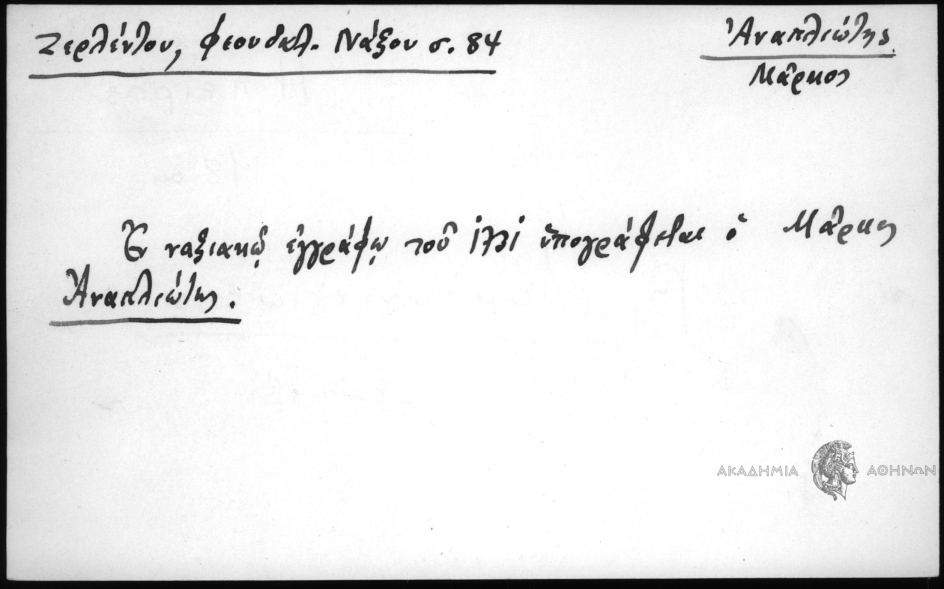 Ζερλέντου, φεουδαλ. Νάξου σ. 84
Ἀναπλιώτης
Μᾶρκος
Ἐν ναξιακῷ ἐγγράφῳ τοῦ ὑπογράφεται ὁ Μᾶρκος
Ἀναπλιώτης.
ΑΚΑΔΗΜΙΑ ΑΘΗΝΩΝ